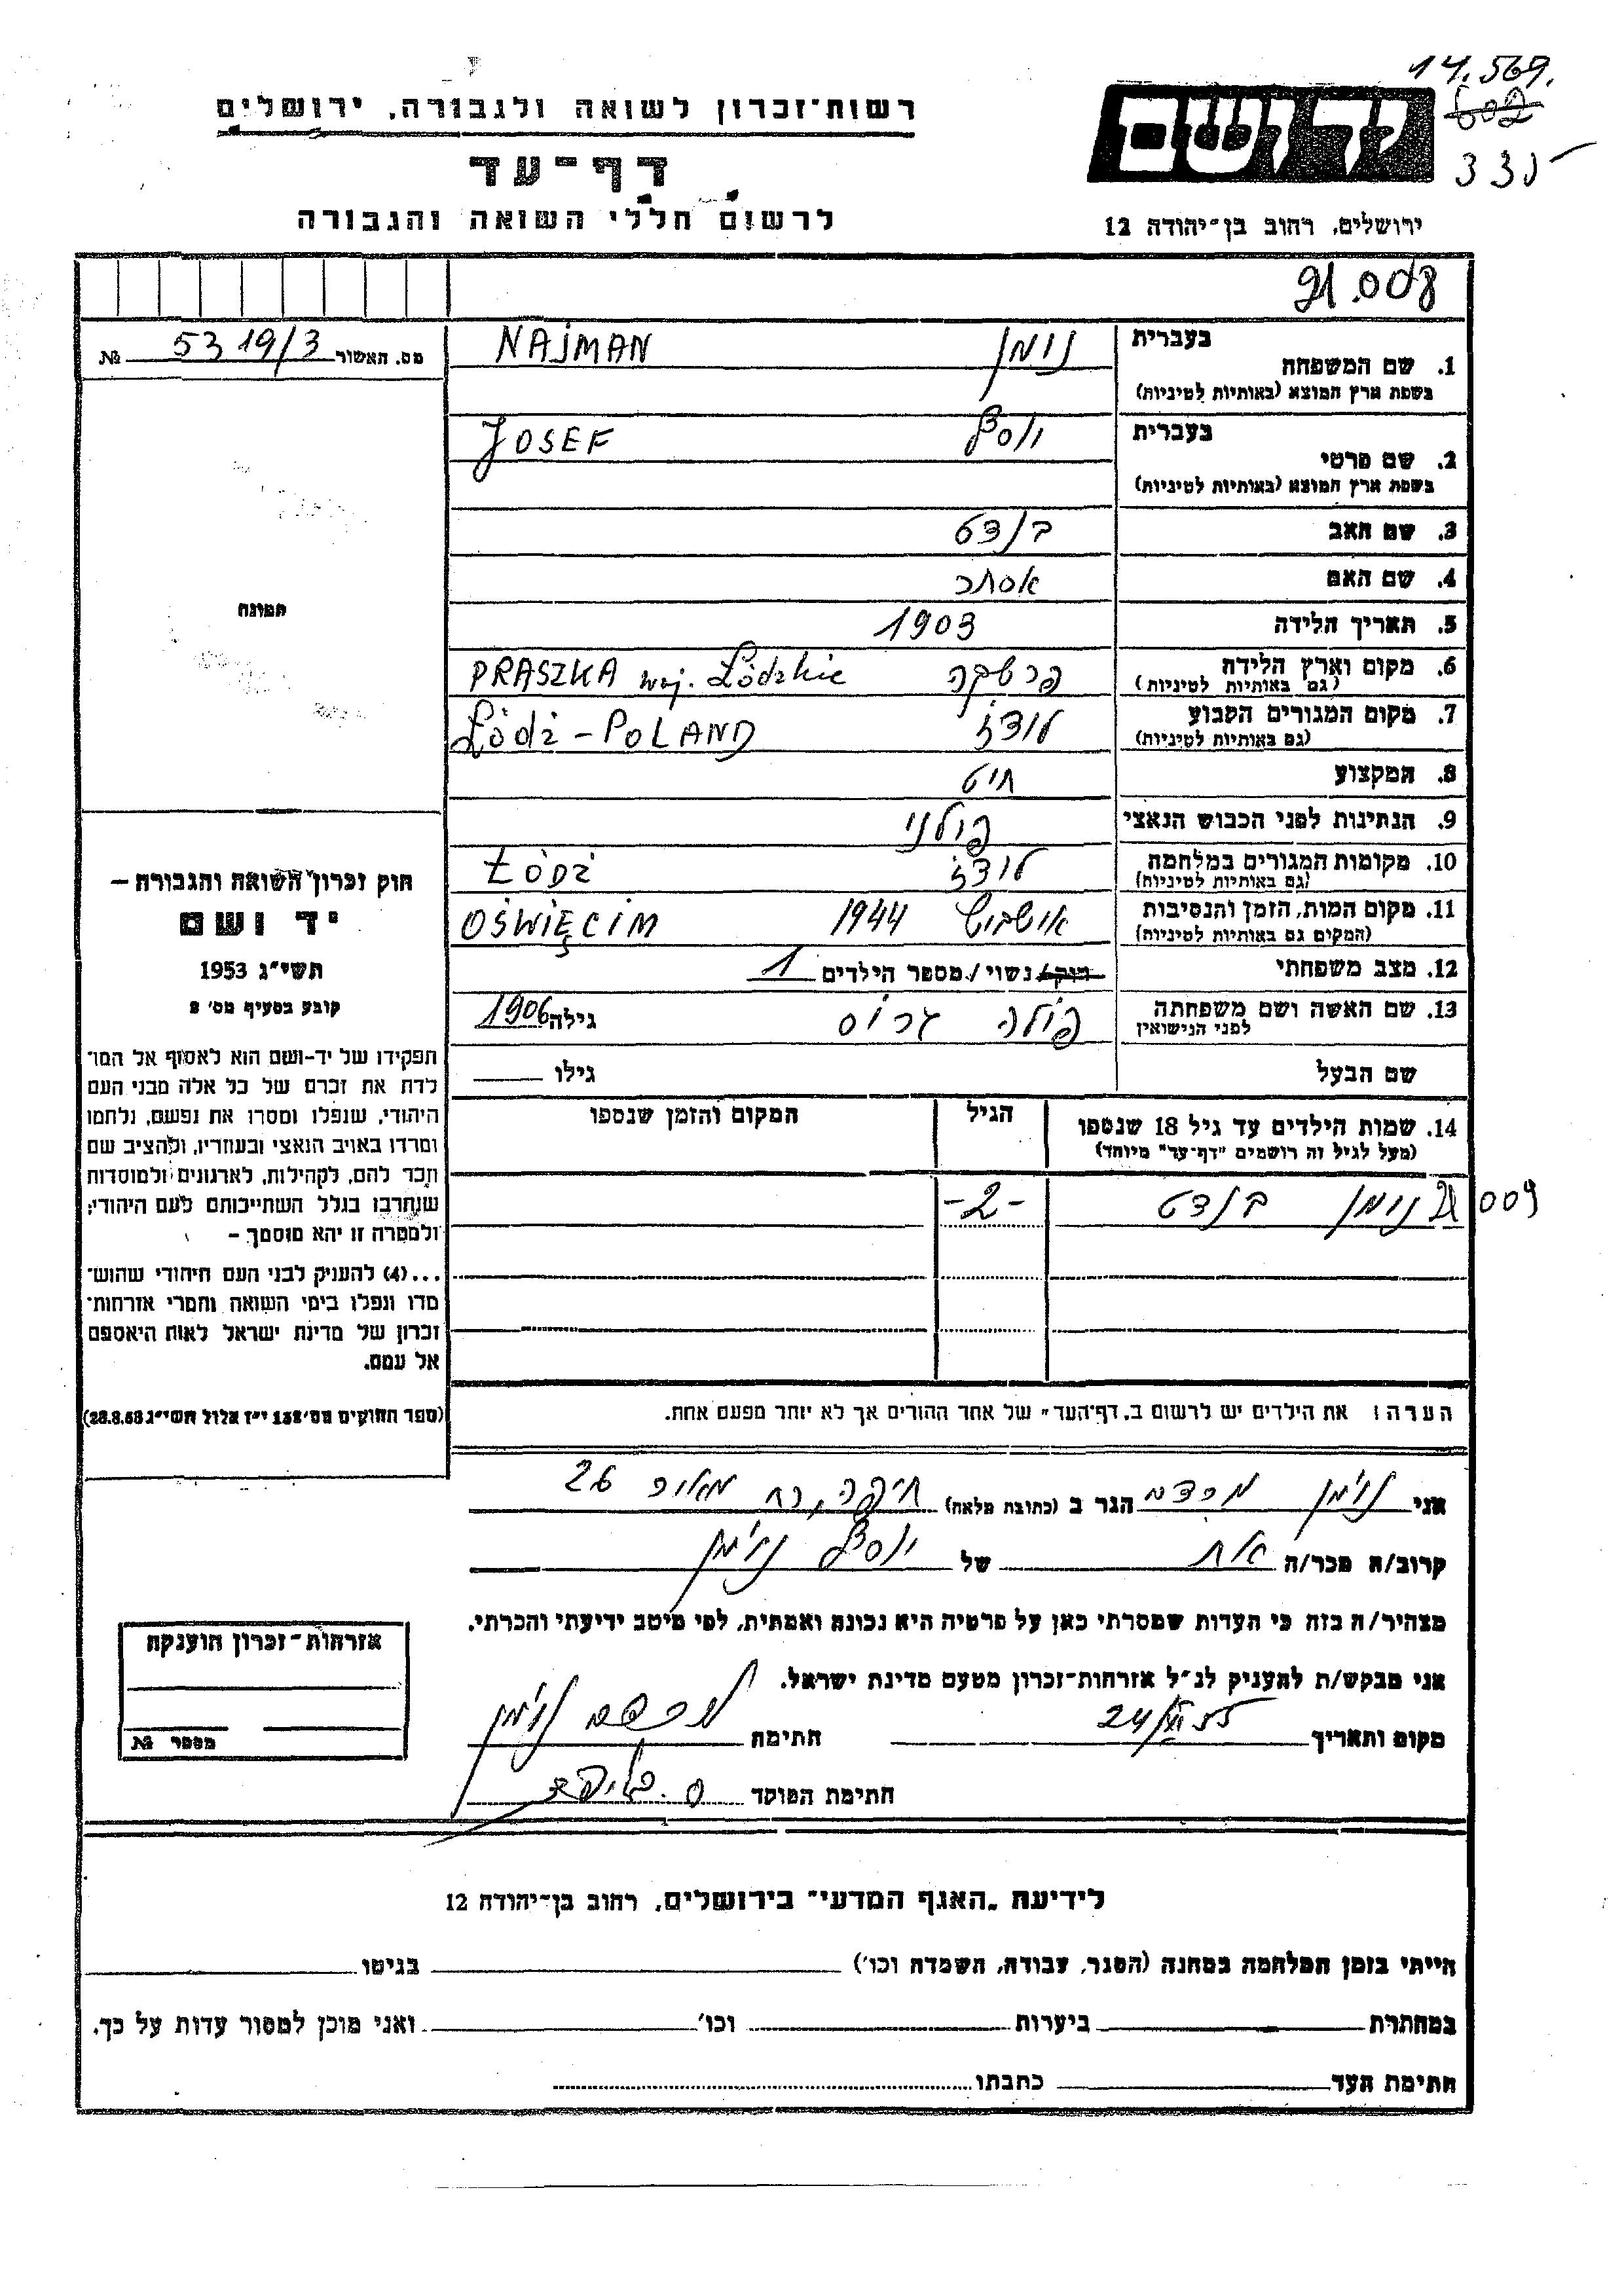 14.569.
602
335
רשות־זכרון לשואה ולגבורה, ירושלים
יד ושם
דף־עד
לרשום חללי השואה והגבורה
ירושלים, רחוב בן־יהודה 12
21.008
מס. האשור 5319/3 №
בעברית
1. שם המשפחה נימן NAJMAN
בשפת ארץ המוצא (באותיות לטיניות)
בעברית
2. שם פרטי יוסף JOSEF
בשפת ארץ המוצא (באותיות לטיניות)
3. שם האב בנדט
4. שם האם אסתר
5. תאריך הלידה 1903
6. מקום וארץ הלידה פרשקה PRASZKA woj. Łódzkie
(גם באותיות לטיניות)
7. מקום המגורים הקבוע לודז Łódź – POLAND
(גם באותיות לטיניות)
8. המקצוע חיט
9. הנתינות לפני הכבוש הנאצי פולני
10. מקומות המגורים במלחמה לודז ŁÓDŹ
(גם באותיות לטיניות)
11. מקום המות, הזמן והנסיבות אושביץ 1944 OŚWIĘCIM
(המקום גם באותיות לטיניות)
12. מצב משפחתי רווק/נשוי/מספר הילדים 1
13. שם האשה ושם משפחתה פולה גרוס גילה 1906
לפני הנישואין
שם הבעל גילו
14. שמות הילדים עד גיל 18 שנספו הגיל המקום והזמן שנספו
(מעל לגיל זה רושמים "דף־עד" מיוחד)
21009 נימן בנדט -2-
הערה: את הילדים יש לרשום ב„דף־העד" של אחד ההורים אך לא יותר מפעם אחת.
תמונה
חוק זכרון השואה והגבורה –
יד ושם
תשי"ג 1953
קובע בסעיף מס' 2
תפקידו של יד-ושם הוא לאסוף אל המו־
לדת את זכרם של כל אלה מבני העם
היהודי, שנפלו ומסרו את נפשם, נלחמו
ומרדו באויב הנאצי ובעוזריו, ולהציב שם
וזכר להם, לקהילות, לארגונים ולמוסדות
שנחרבו בגלל השתייכותם לעם היהודי;
ולמטרה זו יהא מוסמך –
...(4) להעניק לבני העם היהודי שהוש־
מדו ונפלו בימי השואה והמרי אזרחות־
זכרון של מדינת ישראל לאות היאספם
אל עמם.
(ספר החוקים מס' 132 י"ז אלול תשי"ג 28.8.53)
אני נוימן הגר ב (כתובת מלאה) חיפה, רח מאיר 26
קרוב/ה מכר/ה אח של יוסף נוימן
מצהיר/ה בזה כי העדות שמסרתי כאן על פרטיה היא נכונה ואמתית, לפי מיטב ידיעתי והכרתי.
אני מבקש/ת להעניק לנ"ל אזרחות־זכרון מטעם מדינת ישראל.
מקום ותאריך חתימה נוימן
חתימת הפוקד
אזרחות־זכרון הוענקה
מספר №
לידיעת „האגף המדעי" בירושלים, רחוב בן־יהודה 12
הייתי בזמן המלחמה במחנה (הסגר, עבודה, השמדה וכו') בגיטו
במחתרת ביערות וכו' ואני מוכן למסור עדות על כך.
חתימת העד כתבתו